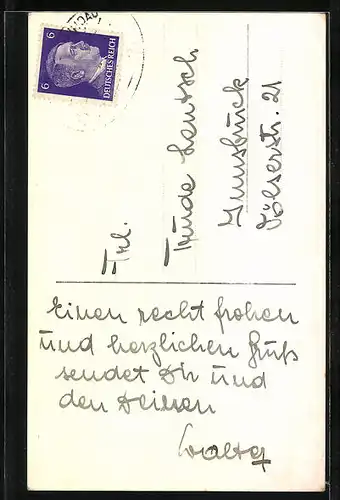 6 6
DEUTSCHES REICH
Frl.
Trude Lentsch
Innsbruck
Völserstr. 21
Einen recht frohen
und herzlichen Gruß
sendet Dir und
den Deinen
Walter